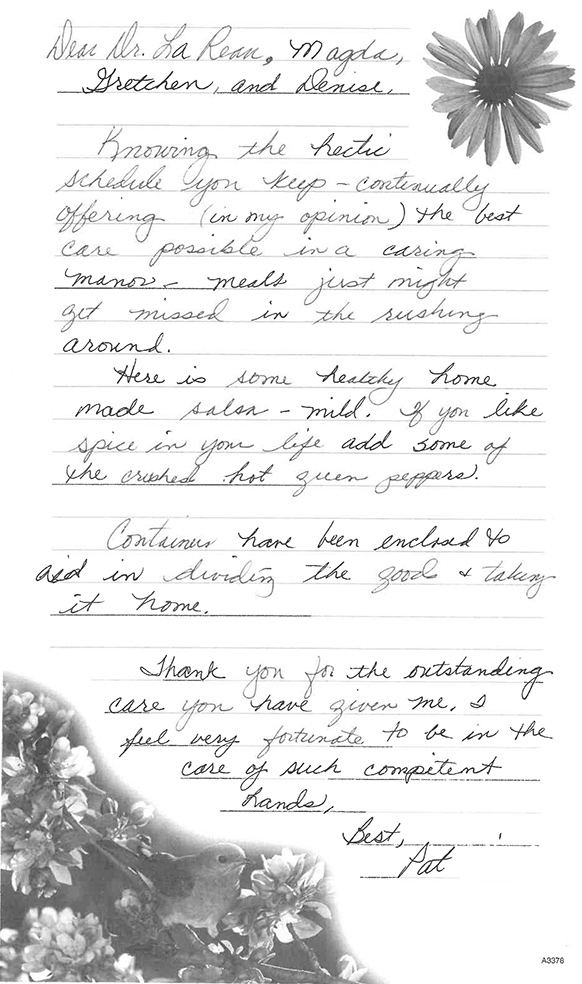 Dear Dr. La Rean, Magda,
Gretchen, and Denise,
Knowing the hectic
schedule you keep – continually
offering (in my opinion) the best
care possible in a caring
manor – meals just might
get missed in the rushing
around.
Here is some healthy home
made salsa – mild. If you like
spice in your life add some of
the crushed hot green peppers.
Containers have been enclosed to
aid in dividing the goods & taking
it home.
Thank you for the outstanding
care you have given me. I
feel very fortunate to be in the
care of such competent
hands,
Best,
Pat
A3378